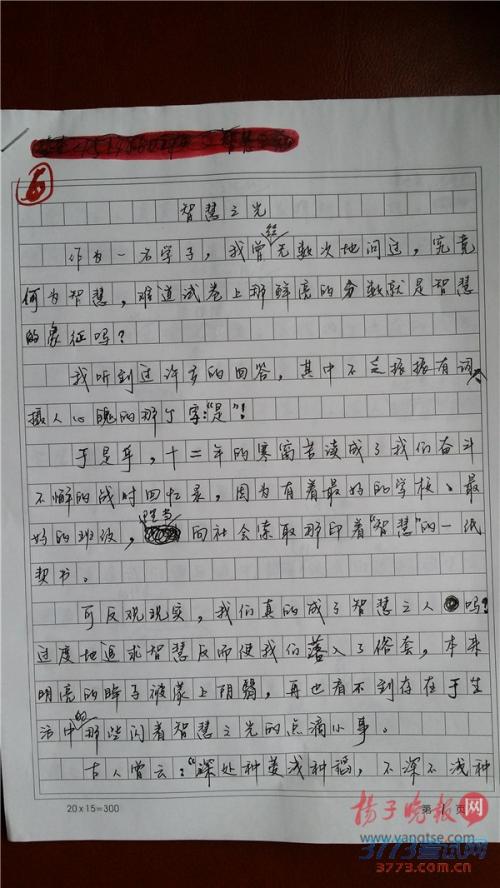 6
智慧之光
作为一名学子，我曾经无数次地问过，究竟
何为智慧，难道试卷上那鲜亮的分数就是智慧
的象征吗？
我听到过许多的回答，其中不乏振振有词、
摄人心魄的那个字:“是”!
于是乎，十二年的寒窗苦读成了我们奋斗
不懈的战时回忆录，因为有着最好的学校、最
好的班级，向社会索取那印着“智慧”的一纸
契书。
可反观现实，我们真的成了智慧之人吗？
过度地追求智慧反而使我们落入了俗套，本来
明亮的眸子被蒙上阴翳，再也看不到存在于生
活中的那些闪着智慧之光的点滴小事。
古人曾云：“深处种菱浅种稻，不深不浅种
20×15=300
第 1 页
扬子晚报网
www.yangtse.com
3773考试网
3773.com.cn